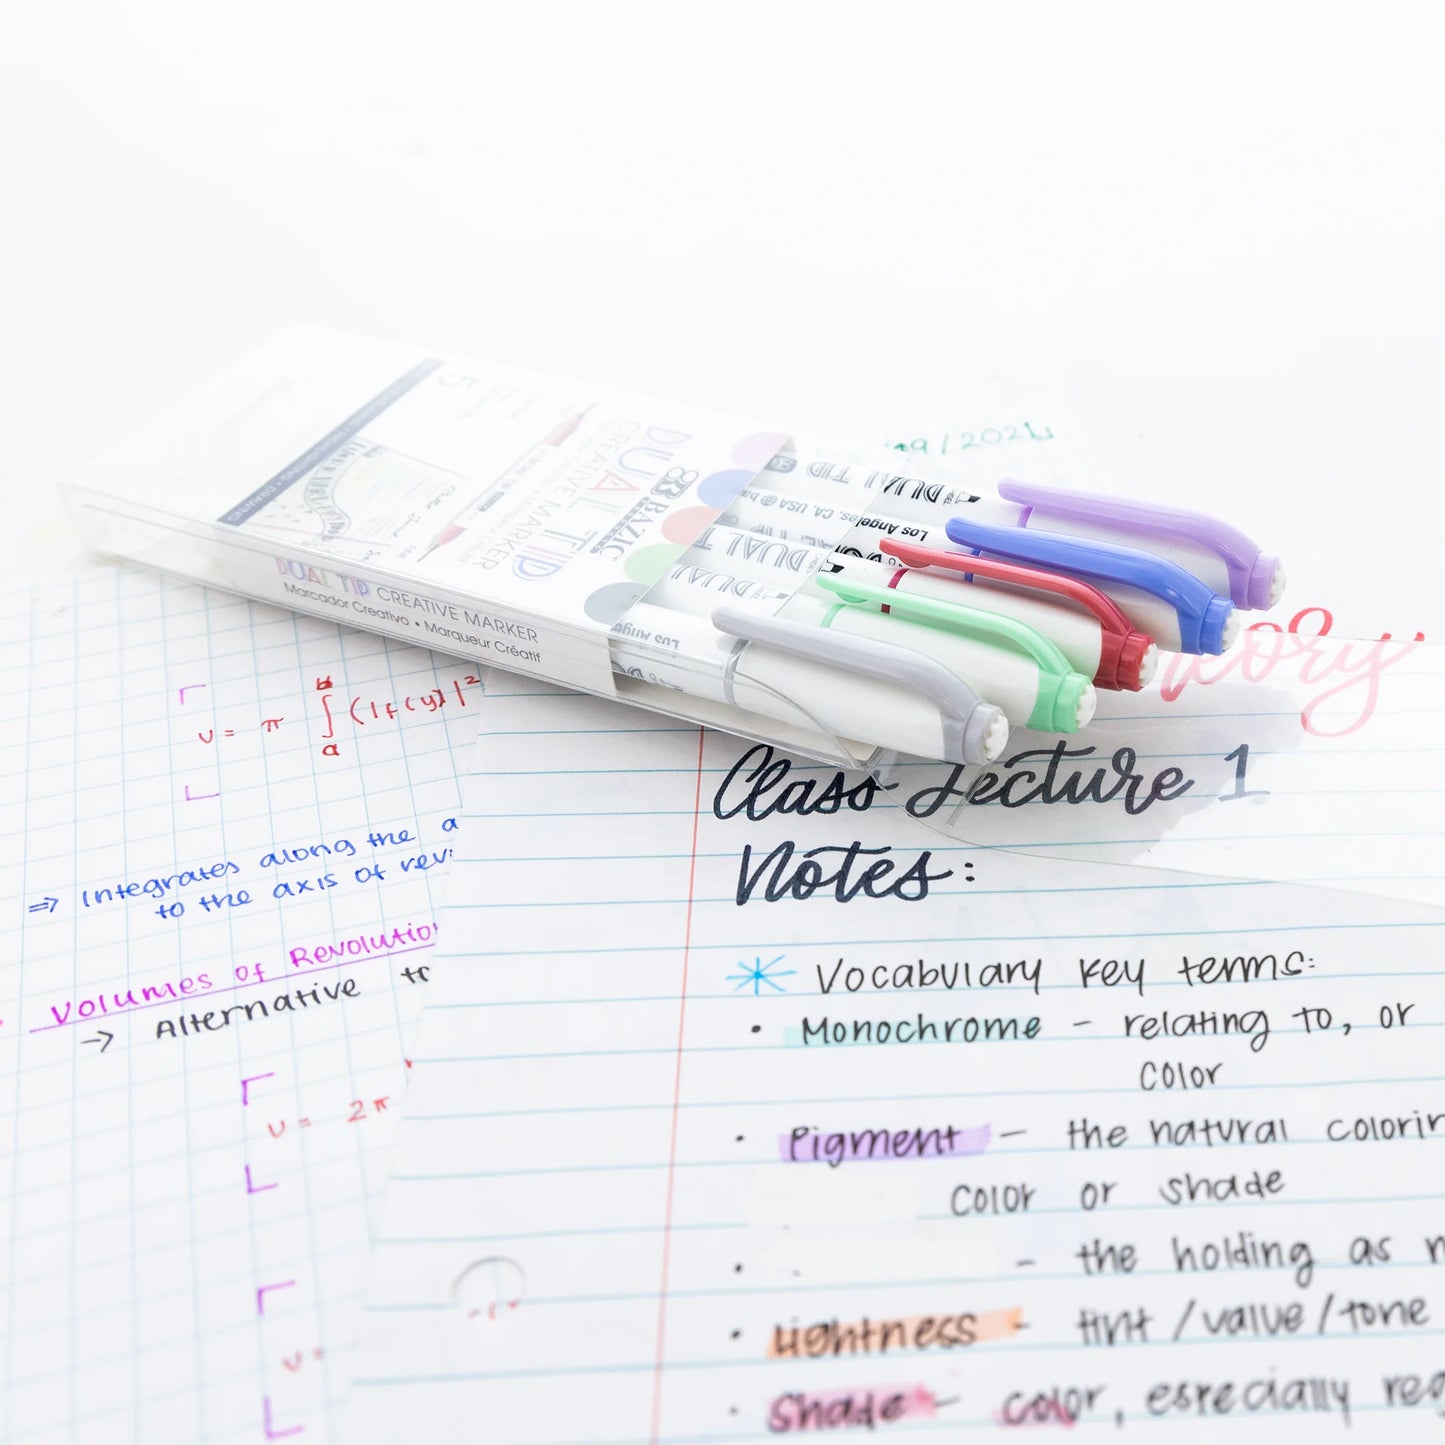 9/2021
5
DRAWING
DUAL TIP
CREATIVE MARKER
BAZIC
DUAL TIP CREATIVE MARKER
Marcador Creativo • Marqueur Créatif
DUAL TIP
DUAL
Los Angeles, CA, USA
DUAL TIP
DUAL
DUAL
Los Ange
eory
Class Lecture 1
Notes:
Vocabulary key terms:
• Monochrome - relating to, or
color
• Pigment - the natural colorin
color or shade
• - the holding as n
• Lightness - tint/value/tone
• Shade - color, especially reg
v = π ∫ (|f(y)|²
b
a
⇒ Integrates along the a
to the axis of rev
Volumes of Revolutio
→ Alternative tr
v = 2π
v =